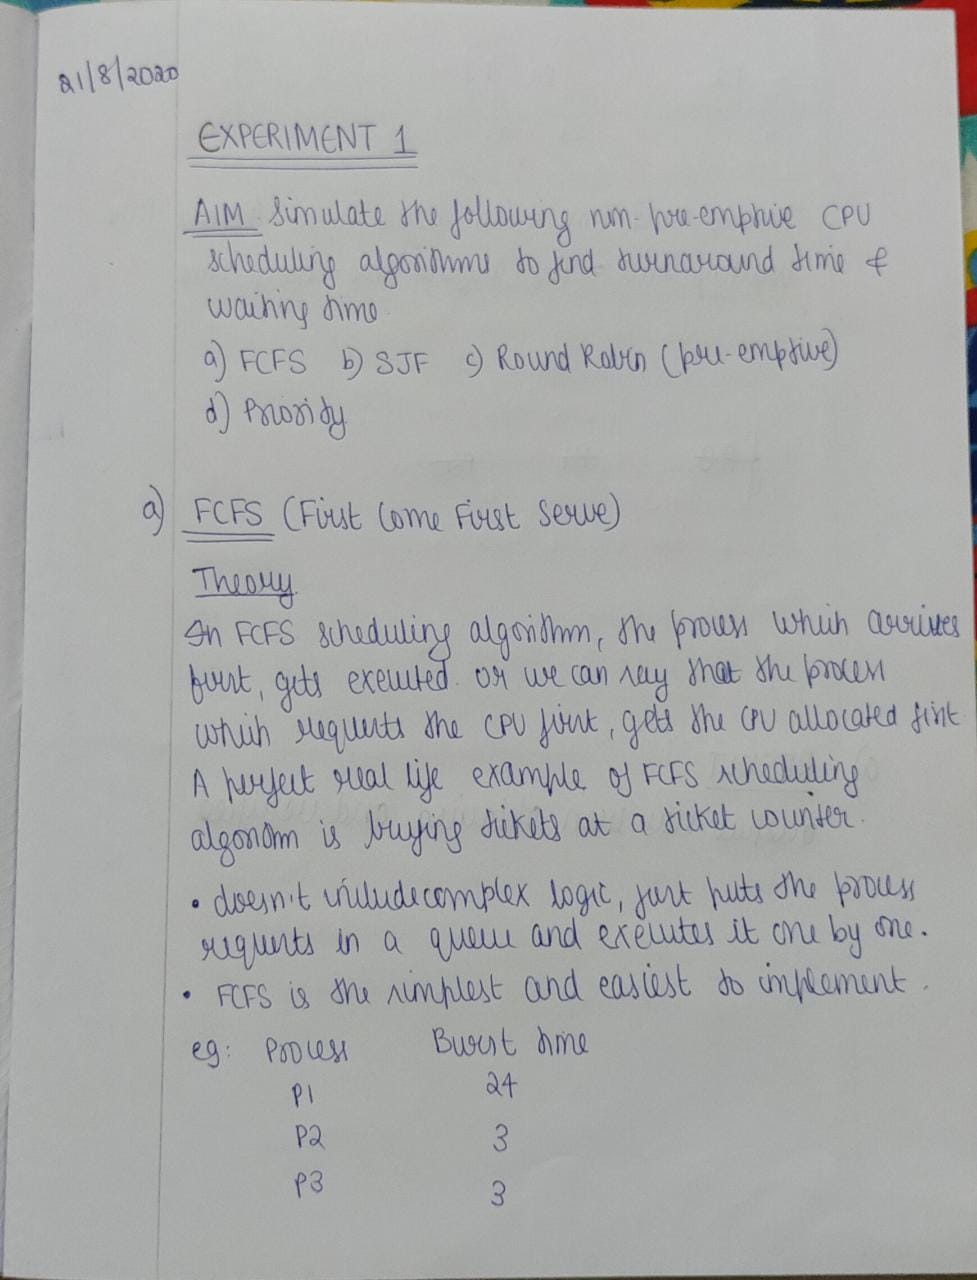 21/8/2020
EXPERIMENT 1
AIM Simulate the following non-pre-emptive CPU
scheduling algorithms to find turnaround time &
waiting time
a) FCFS b) SJF c) Round Robin (pre-emptive)
d) Priority
a) FCFS (First Come First Serve)
Theory
In FCFS scheduling algorithm, the process which arrives
first, gets executed. or we can say that the process
which requests the CPU first, gets the CPU allocated first
A perfect real life example of FCFS scheduling
algorithm is buying tickets at a ticket counter.
• doesn't include complex logic, just puts the process
requests in a queue and executes it one by one.
• FCFS is the simplest and easiest to implement.
eg: Process Burst time
P1 24
P2 3
P3 3